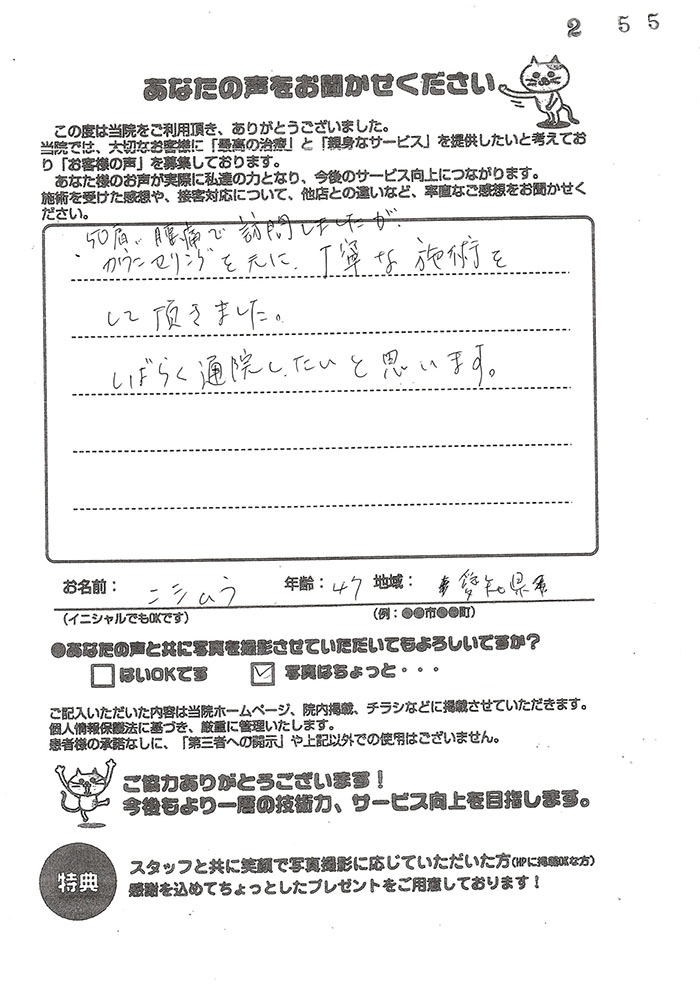 2 55
あなたの声をお聞かせください
この度は当院をご利用頂き、ありがとうございました。
当院では、大切なお客様に「最高の治療」と「親身なサービス」を提供したいと考えてお
り「お客様の声」を募集しております。
あなた様のお声が実際に私達の力となり、今後のサービス向上につながります。
施術を受けた感想や、接客対応について、他店との違いなど、率直なご感想をお聞かせく
ださい。
50肩、腰痛で訪問しましたが、
カウンセリングを元に、丁寧な施術を
して頂きました。
しばらく通院したいと思います。
お名前： ニシムラ 年齢： 47 地域： 愛知県
(イニシャルでもOKです) (例：●●市●●町)
●あなたの声と共に写真を撮影させていただいてもよろしいですか？
はいOKです 写真はちょっと・・・
ご記入いただいた内容は当院ホームページ、院内掲載、チラシなどに掲載させていただきます。
個人情報保護法に基づき、厳重に管理いたします。
患者様の承諾なしに、「第三者への開示」や上記以外での使用はございません。
ご協力ありがとうございます！
今後もより一層の技術力、サービス向上を目指します。
特典
スタッフと共に笑顔で写真撮影に応じていただいた方(HPに掲載OKな方)
感謝を込めてちょっとしたプレゼントをご用意しております！